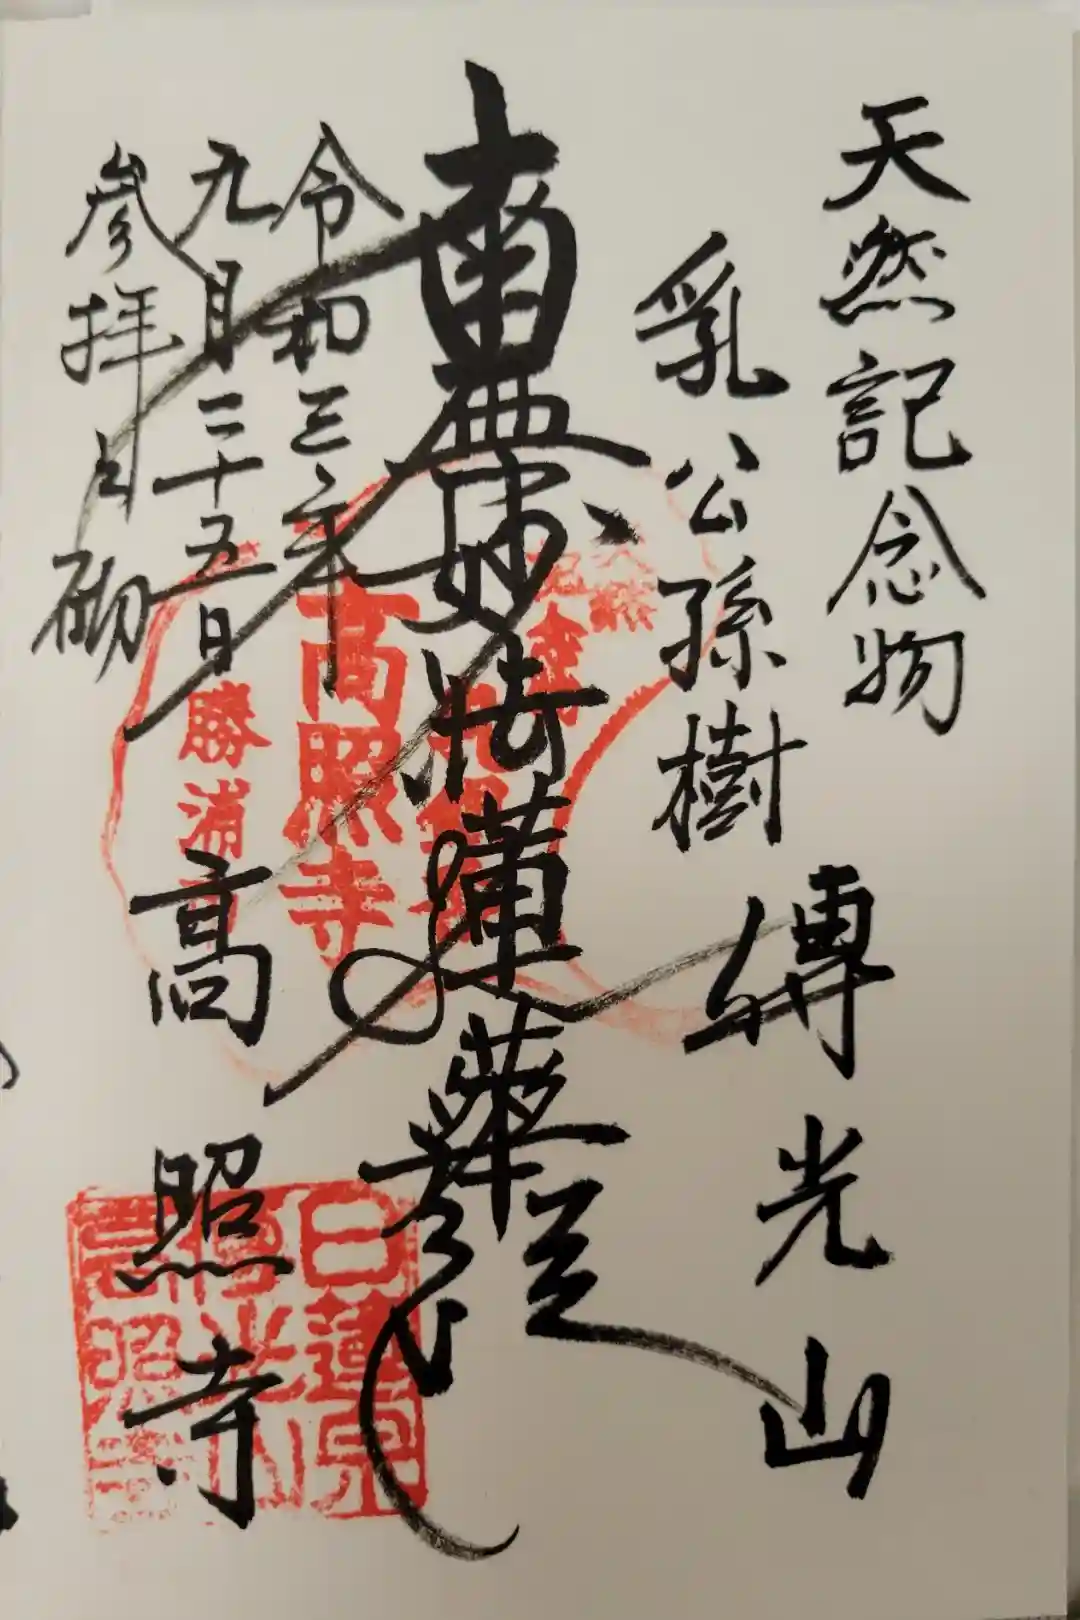 天然記念物
乳公孫樹
轉光山
南無妙法蓮華経
令和三年
九月二十五日
参拝之砌
高照寺
高照寺
勝浦
日蓮宗
轉光山
高照寺